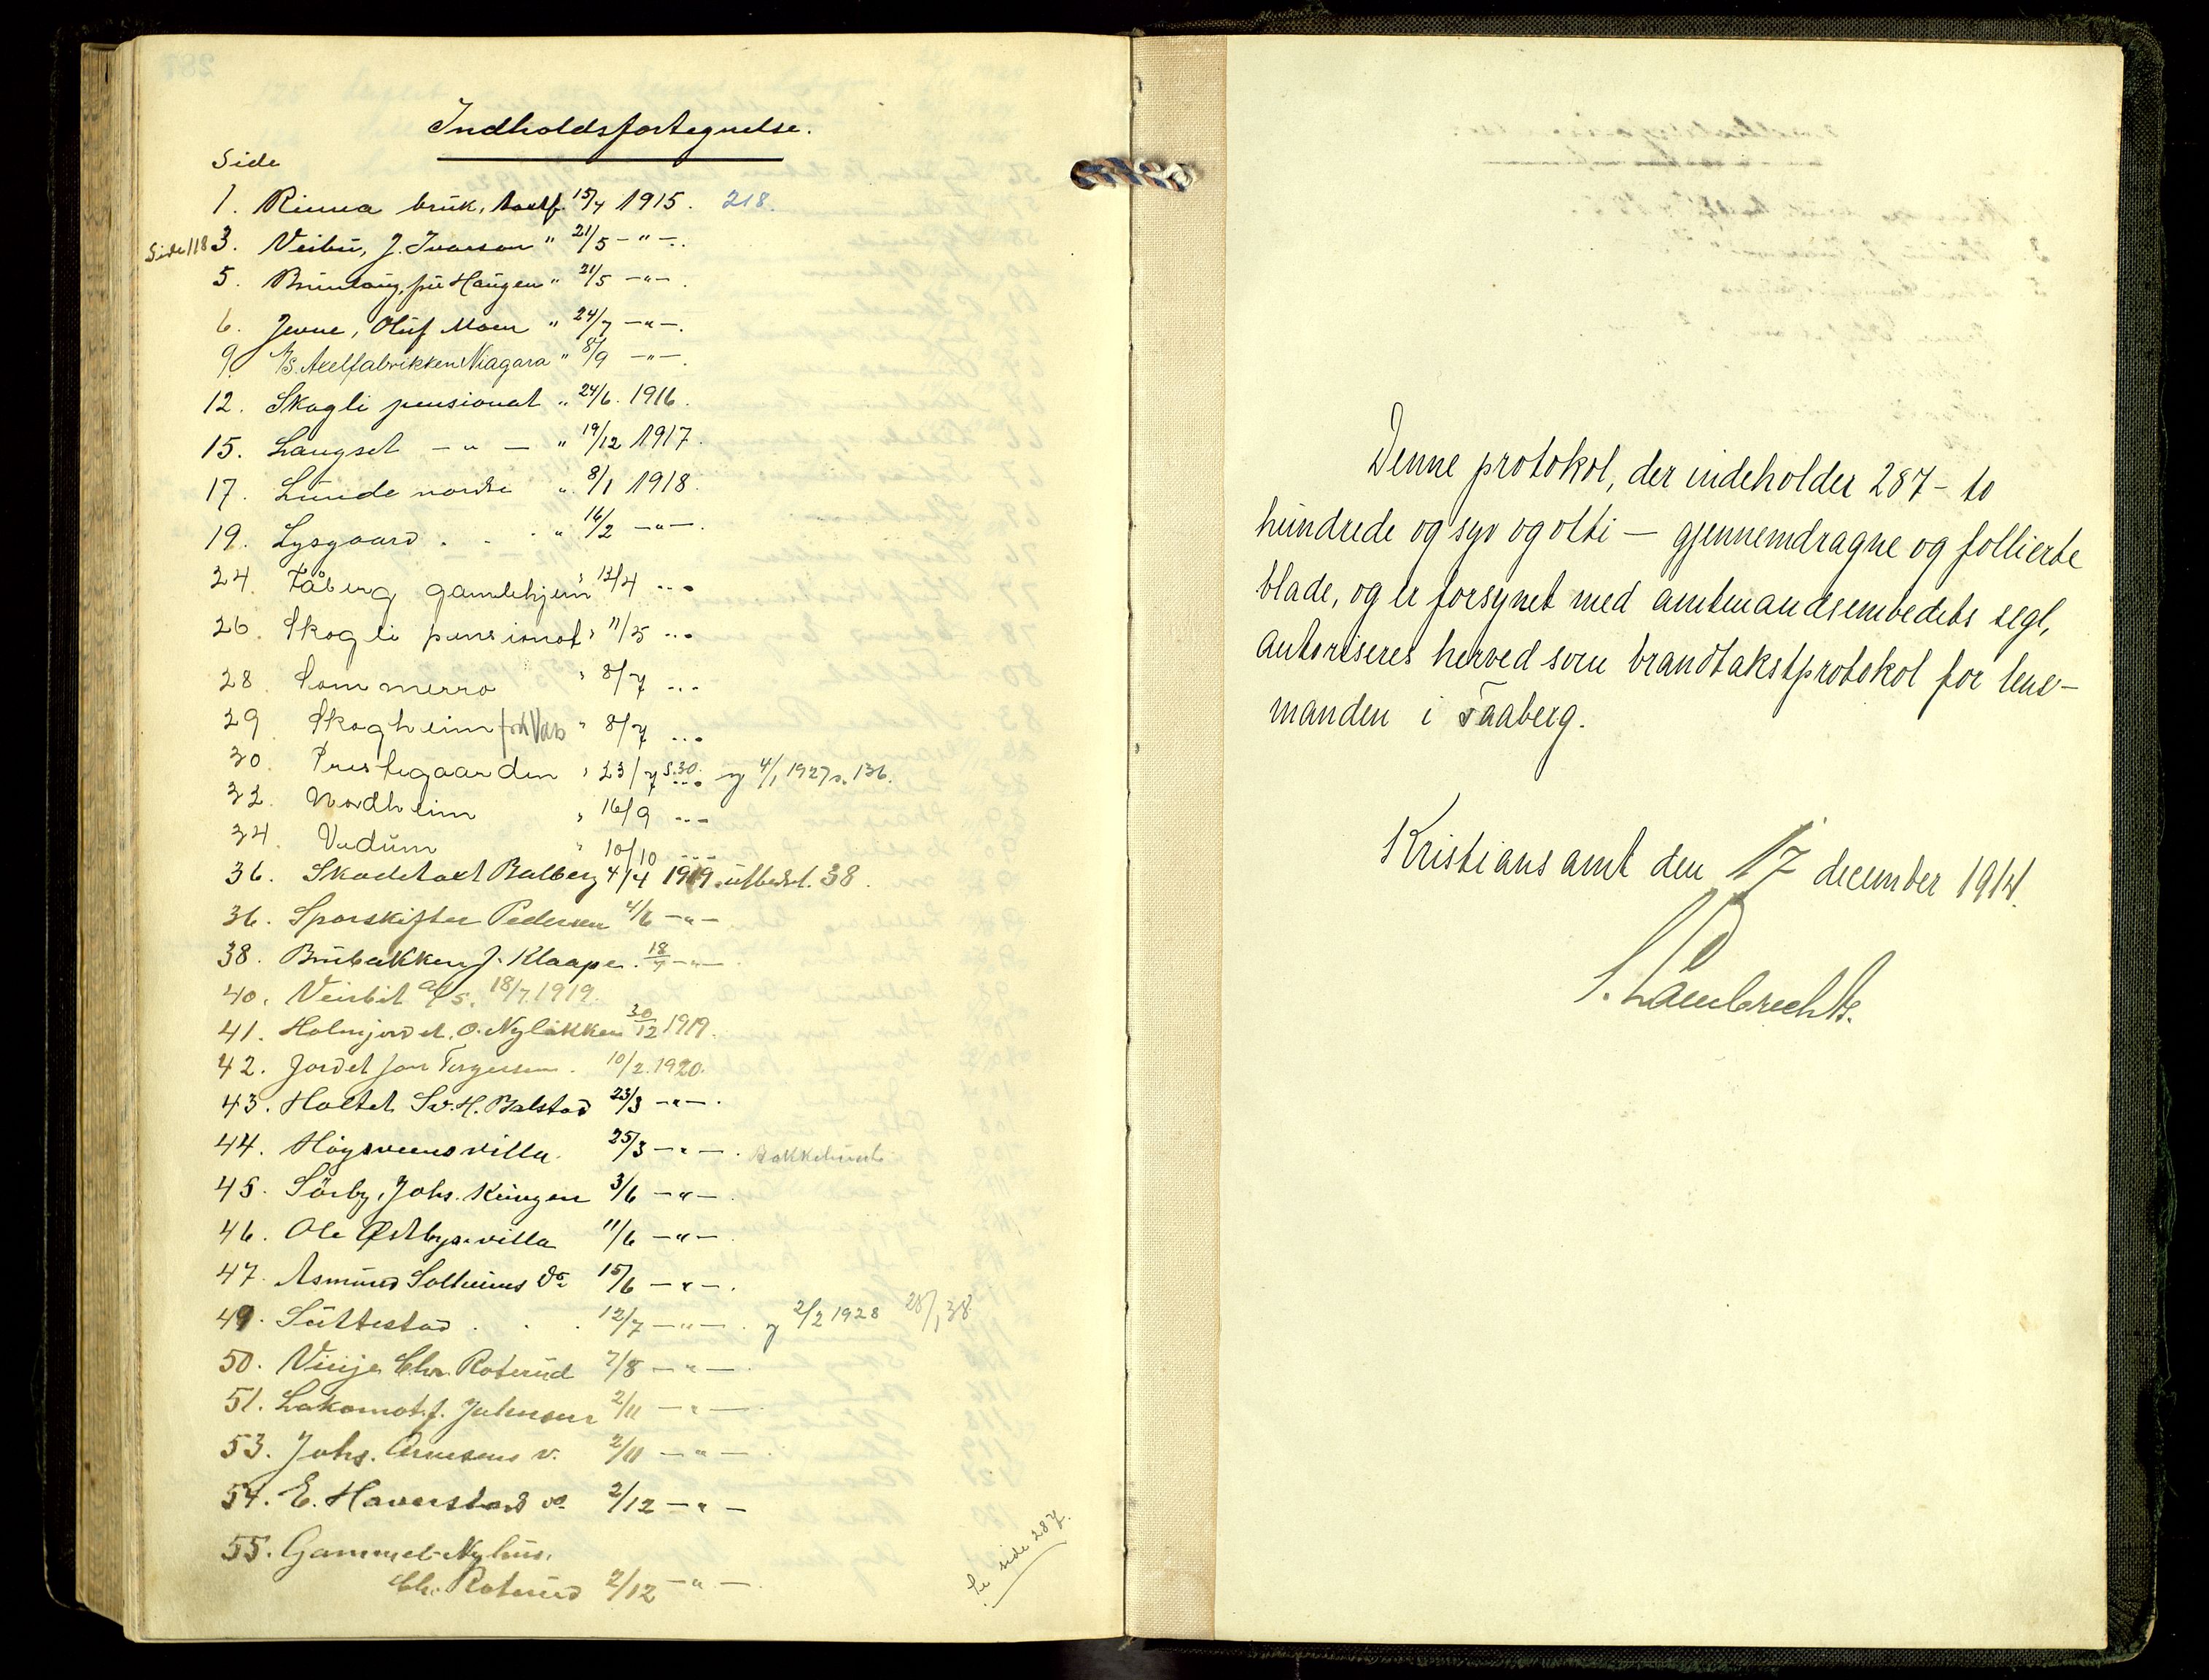 Indholdsfortegnelse.
Side
1. Rinna bruk, 15/7 1915. 218.
Side 118 3. Veibu, J. Ivarson " 21/5 - " -.
5. Brunlaug, på Haugen " 21/5 - " -.
6. Jevne, Oluf Moen " 24/7 - " -.
9. A/S. Axelfabrikken Niagara " 8/9 - " -.
12. Skogli pensionat " 24/6. 1916.
15. Langset - " - " 19/12 1917.
17. Lunde nordre " 8/1 1918.
19. Lysgaard . . . " 16/2 - " -.
24. Fåberg gamlehjem " 12/4 ...
26. Skogli pensionat " 11/5 ...
28. Sommerro " 8/7 ...
29. Skogheim " 8/7 ...
30. Prestegaarden " 23/7 S.30. og 4/1 1927 s. 136.
32. Nordheim " 16/9 ...
34. Vedum " 10/10 ...
36. Balberg 4/4 1919. 38.
36. Sporskifter Pedersen 4/6 - " -
38. Brubakken J. Klaape. 18/7 - " -.
40. Veirbit a/s. 18/7.1919.
41. Holmjordet, O. Nyløkken 30/12 1919.
42. Jordet Jon Torgersen. 10/2.1920.
43. Holtet Sv. H. Balstad 23/3 - " -.
44. Høgsveens villa. 25/3 - " -.
45. Sörby, Johs. Kungen 3/6 - " -.
46. Ole Østbys villa 11/6 - " -.
47. Asmund Solheims do 15/6 - " -.
49. Suttestad . . . 12/7 - " -. og 2/2 1928 28/1 38
50. Chr. Roterud 7/8 - " -.
51. Lokomot.f. Johnsens 2/11 - " -.
53. Johs. Arnesens v. 2/11 - " -.
54. E. Haverstad do 2/12 - " -
55. Gammel-Nyhus,
Ch. Roterud 2/12 - " -.
Se side 287.
Denne protokol, der indeholder 287 - to
hundrede og syv og otti - gjennemdragne og follierte
blade, og er forsynet med amtmandsembedets segl,
autoriseres herved som brandtakstprotokol for lens-
manden i Faaberg.
Kristians amt den 17 december 1914.
S. Lambrechts.